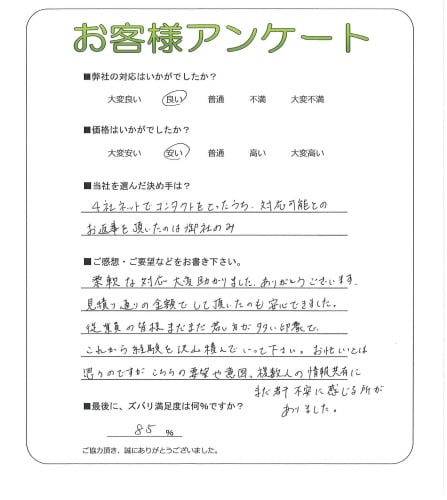 お客様アンケート
■弊社の対応はいかがでしたか？
大変良い 良い 普通 不満 大変不満
■価格はいかがでしたか？
大変安い 安い 普通 高い 大変高い
■当社を選んだ決め手は？
4社ネットでコンタクトをとったうち、対応可能との
お返事を頂いたのは御社のみ
■ご感想・ご要望などをお書き下さい。
柔軟な対応大変助かりました。ありがとうございます。
見積り通りの金額でして頂いたのも安心できました。
従業員の皆様まだまだ若い方が多い印象で、
これから経験を沢山積んでいって下さい。お忙いとは
思うのですが こちらの要望や意図、複数人の情報共有に
まだ若干不安に感じる所が
ありました。
■最後に、ズバリ満足度は何%ですか？
85 %
ご協力頂き、誠にありがとうございました。